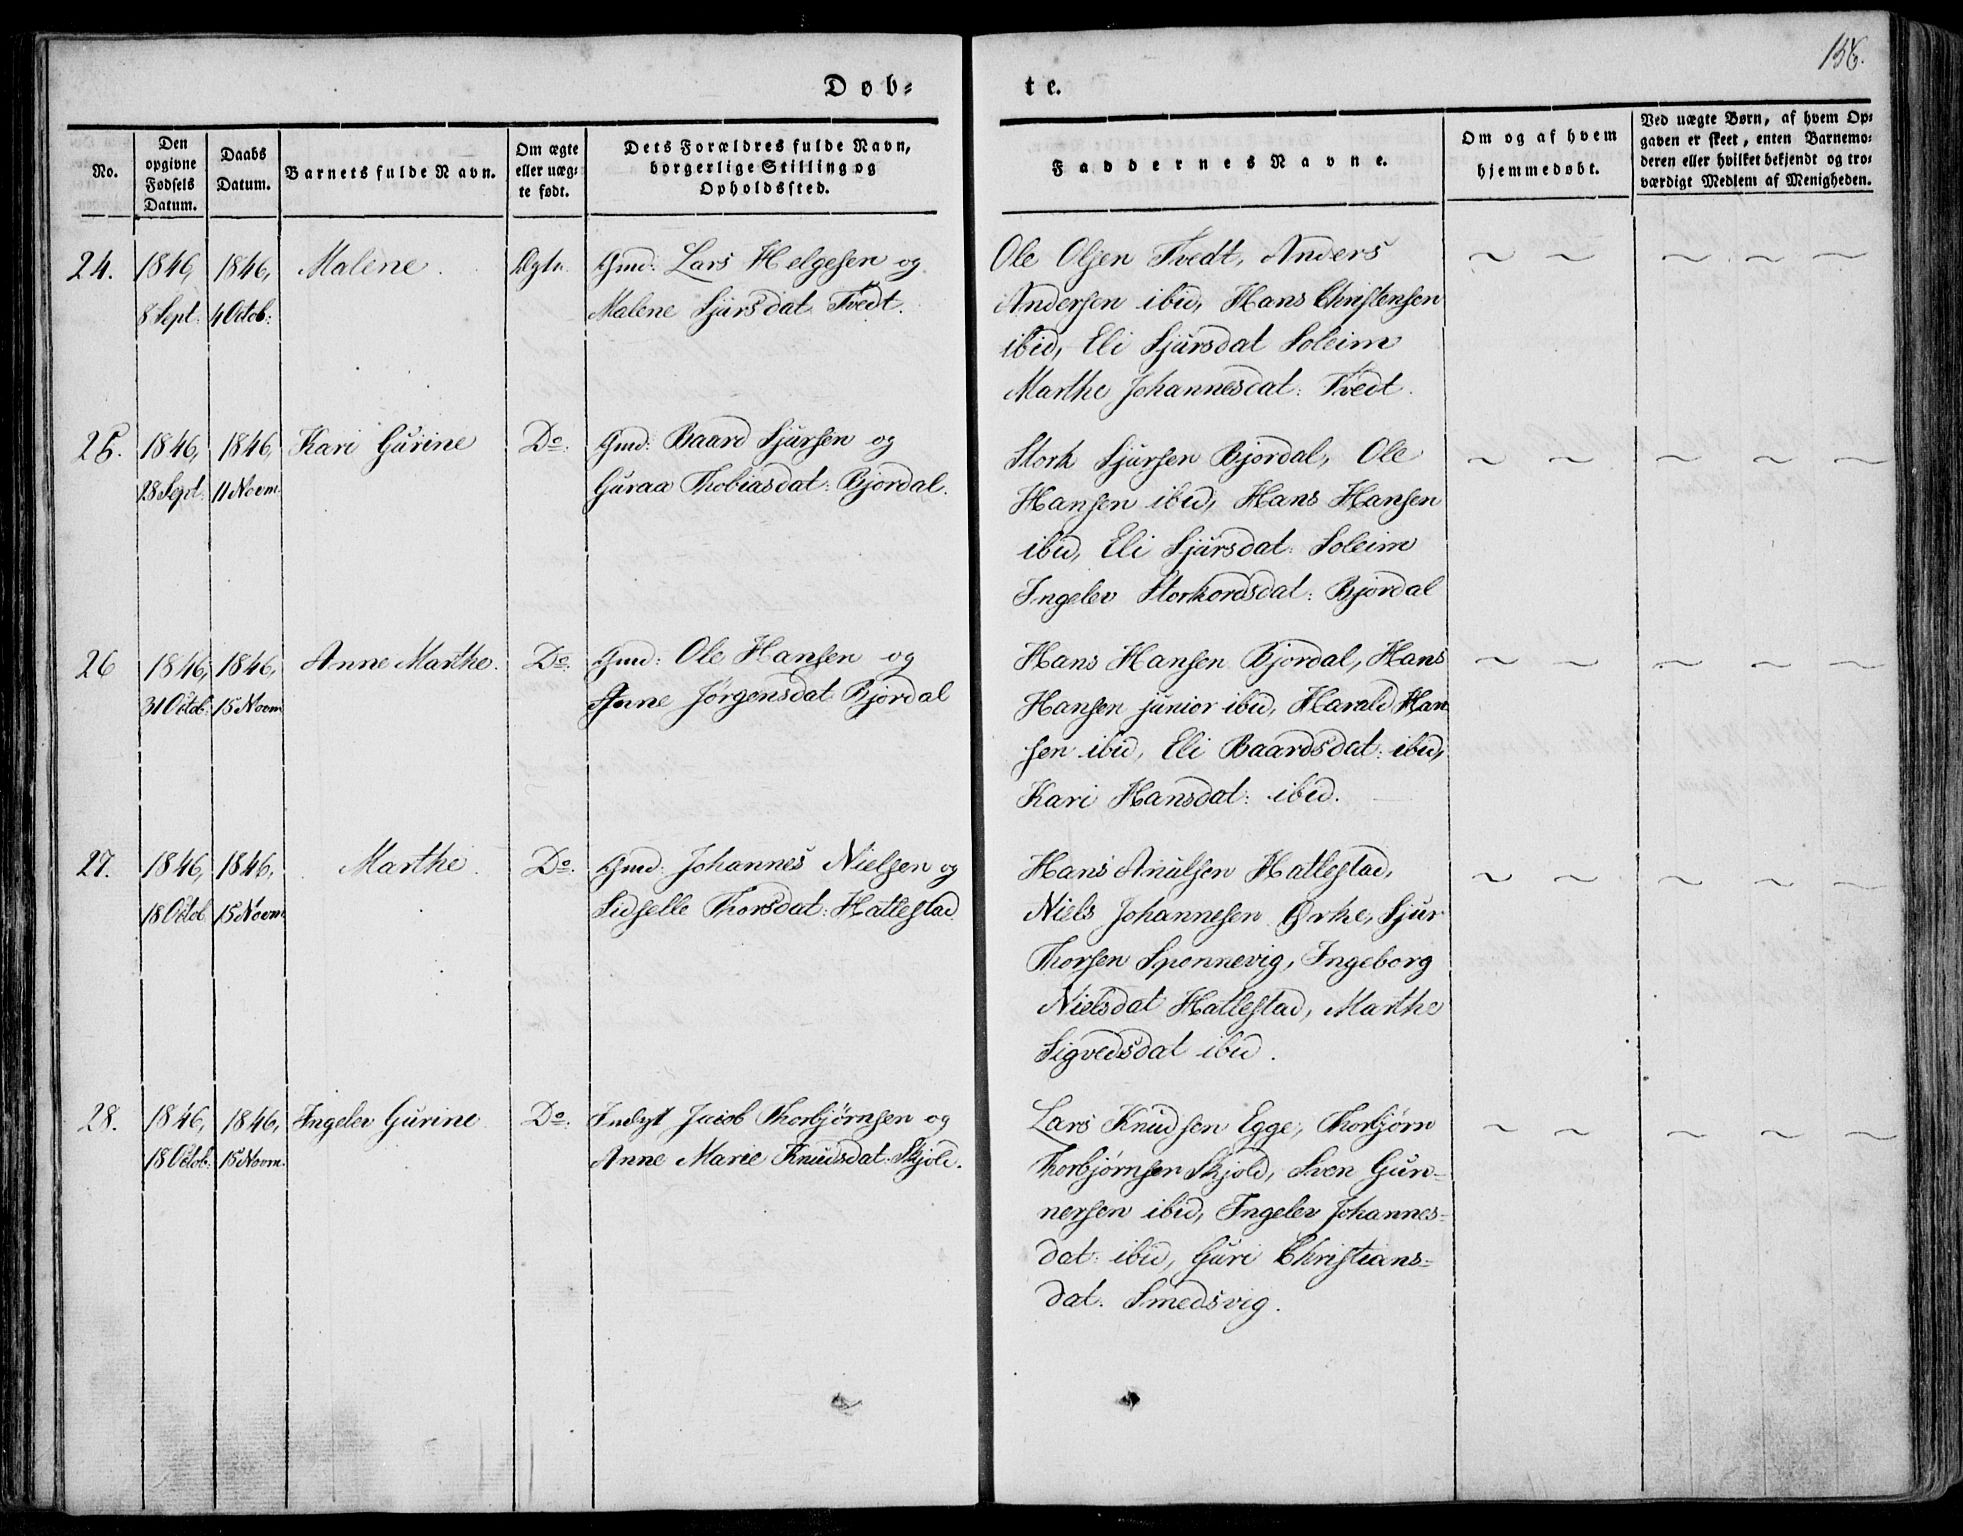 156.
Døb=
te.
No.
Den
opgivne
Fødsels
Datum.
Daabs
Datum.
Barnets fulde Navn.
Om ægte
eller uæg=
te født.
Dets Forældres fulde Navn,
borgerlige Stilling og
Opholdssted.
Faddernes Navne.
Om og af hvem
hjemmedøbt.
Ved uægte Børn, af hvem Op=
gaven er skeet, enten Barnemo=
deren eller hvilket bekjendt og tro=
værdigt Medlem af Menigheden.
24. 1846, 1846, Malene. Ægte. Gmd: Lars Helgesen og
8 Sept: 4 Octob: Malene Sjursdat Tvedt.
Ole Olsen Tvedt, Anders
Andersen ibid, Hans Christensen
ibid, Eli Sjursdat Soleim
Marthe Johannesdat: Tvedt.
25. 1846, 1846, Kari Gurine Do. Gmd: Baard Sjursen og
28 Sept: 11 Novm. Guraa Thobiasdat: Bjordal.
Stork Sjursen Bjordal, Ole
Hansen ibid, Hans Hansen
ibid, Eli Sjursdat: Soleim
Ingelev Storkordsdat: Bjordal
26 1846, 1846, Anne Marthe. Do. Gmd: Ole Hansen og
31 Octob: 15 Novm Anne Jørgensdat Bjordal
Hans Hansen Bjordal, Hans
Hansen junior ibid, Harald Han
sen ibid, Eli Baardsdat: ibid,
Kari Hansdat: ibid.
27. 1846, 1846, Marthe. Do. Gmd: Johannes Nielsen og
18 Octob 15 Novm. Sidselle Thorsdat: Hatlestad
Hans Hatlestad,
Niels Johannesen Ørke, Sjur
Thorsen Sponnevig, Ingeborg
Nielsdat Hatlestad, Marthe
Sigvedsdat ibid.
28. 1846, 1846, Ingelev Gurine Do. Inds: Jacob Thorbjørnsen og
18 Octob: 15 Novm. Anne Marie Knudsdat: Skjold.
Lars Knudsen Egge, Thorbjørn
Thorbjørnsen Skjold, Sven Gun=
nersen ibid, Ingelev Johannes=
dat: ibid, Guri Christians=
dat: Smedsvig.